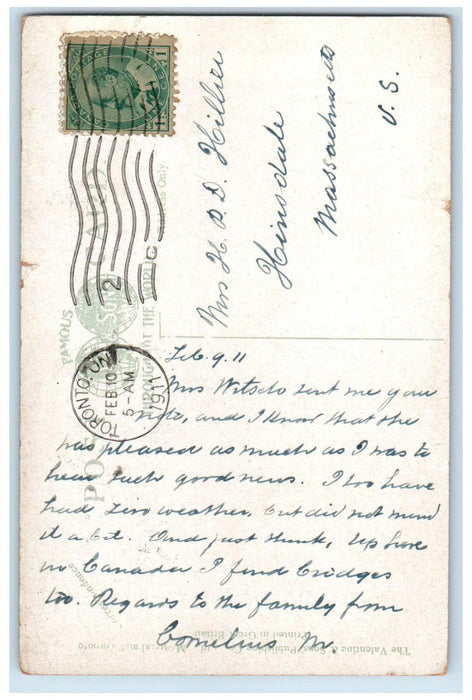 Mrs H. P. D. Hillier
Hinsdale
Massachusetts
U. S.
POSTAGE
1
2
CARD
Address Only.
FAMOUS
THROUGHOUT THE WORLD
TORONTO, ONT.
FEB 10
5-AM
1911
Feb. 9. 11
Mrs sent me your
note, and I know that she
was pleased as much as I was to
hear such good news. I too have
had zero weather, but did not mind
it a bit. And just think, up here
in Canada I find bridges
too. Regards to the family from
Cornelius M.
The Valentine & Sons Publishing Co. Ltd. Montreal and Toronto
Printed in Great Britain